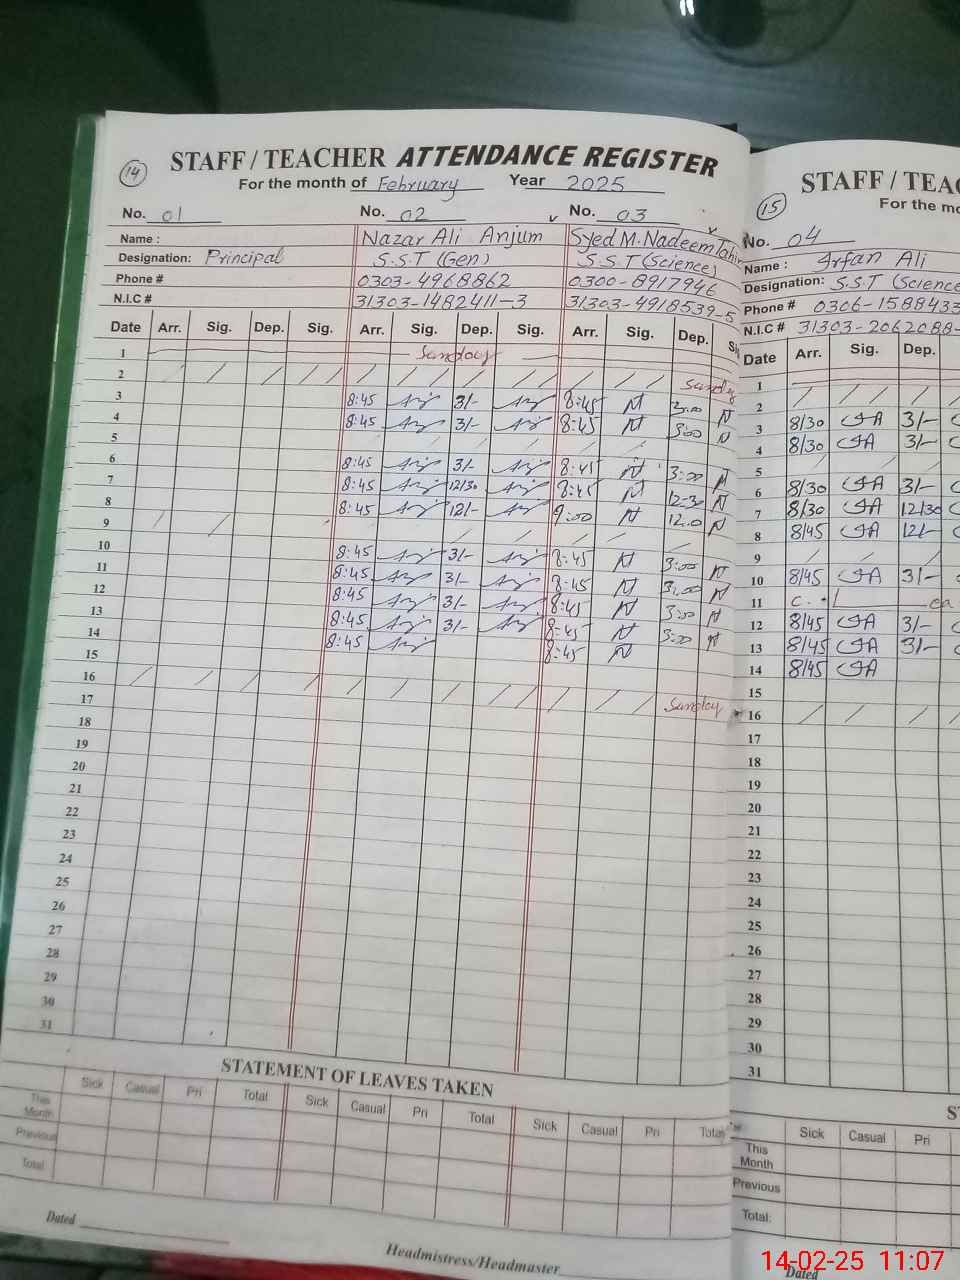 14
STAFF / TEACHER ATTENDANCE REGISTER
For the month of February Year 2025
No. 01 No. 02 No. 03
Name : Nazar Ali Anjum Syed M. Nadeem Tahir
Designation: Principal S.S.T (Gen) S.S.T (Science)
Phone # 0303-4968862 0300-8917946
N.I.C # 31303-1482411-3 31303-4918539-5
Date Arr. Sig. Dep. Sig. Arr. Sig. Dep. Sig. Arr. Sig. Dep.
1 Sunday
2 Sunday
3 8:45 3/- 8:45 3:00
4 8:45 3/- 8:45 3:00
5
6 8:45 3/- 8:45 3:00
7 8:45 12/30 8:45 12-30
8 8:45 12/- 9:00 12.0
9
10 8:45 3/- 8:45 3:00
11 8:45 3/- 8:45 3:00
12 8:45 3/- 8:45 3:00
13 8:45 3/- 8:45 3:00
14 8:45 8:45
15
16 Sunday
17
18
19
20
21
22
23
24
25
26
27
28
29
30
31
STATEMENT OF LEAVES TAKEN
Sick Casual Pri Total Sick Casual Pri Total Sick Casual Pri Total
This Month
Previous
Total
Dated
Headmistress/Headmaster
15
STAFF / TEAC
For the mo
No. 04
Name : Irfan Ali
Designation: S.S.T (Science
Phone # 0306-1588433
N.I.C # 31303-2062088-
Date Arr. Sig. Dep.
1
2
3 8/30 IA 3/-
4 8/30 IA 3/-
5
6 8/30 IA 3/-
7 8/30 IA 12/30
8 8/45 IA 12/-
9
10 8/45 IA 3/-
11 C.
12 8/45 IA 3/-
13 8/45 IA 3/-
14 8/45 IA
15
16
17
18
19
20
21
22
23
24
25
26
27
28
29
30
31
Sick Casual Pri
This Month
Previous
Total:
Dated
14-02-25 11:07